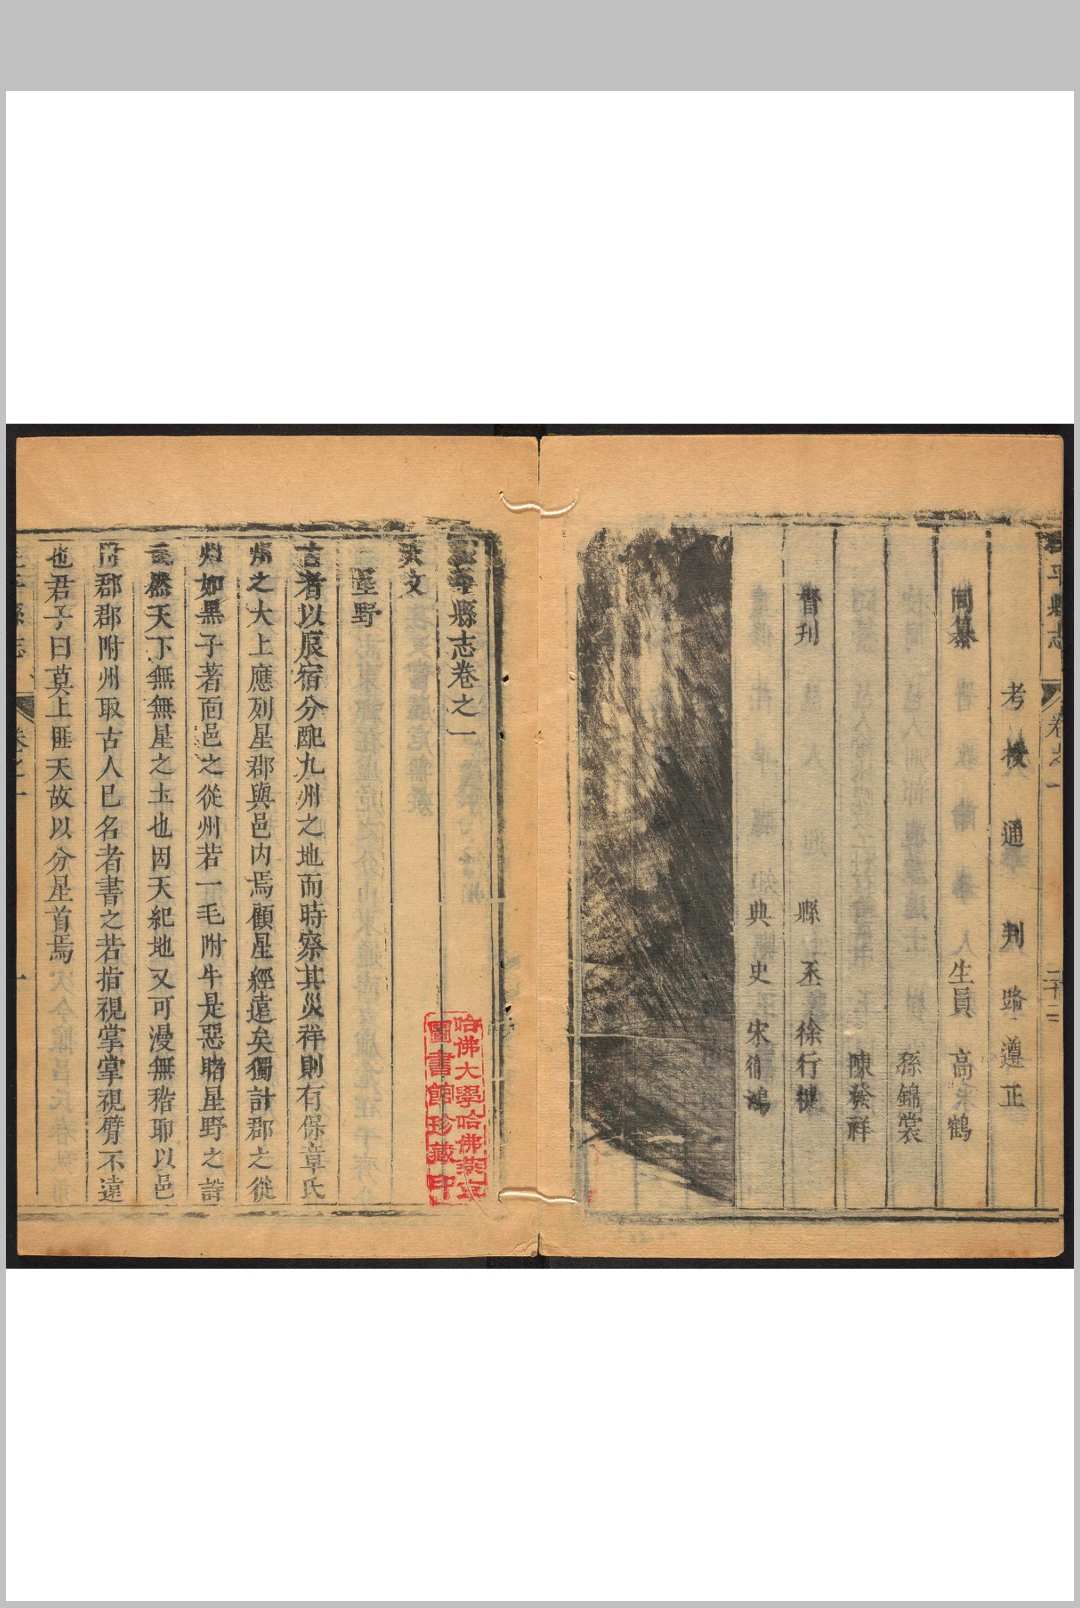 平縣志
卷之一
二十二
考校 通判 路遵正
同纂
生員 高鶴
孫錦裳
陳發祥
督刊
縣丞 徐行捷
典史 宋鴻
縣志卷之一
天文
星野
古者以辰宿分配九州之地而時察其災祥則有保章氏
州之大上應列星郡與邑內焉顧星經遠矣獨計郡之從
州如黑子著面邑之從州若一毛附牛是惡睹星野之
然天下無無星之土也因天紀地又可漫無稽耶以邑
附郡郡附州取古人已名者書之若指視掌掌視臂不遠
也君子曰莫上匪天故以分星首焉
平縣志
卷之一
一
哈佛大學哈佛燕京
圖書館珍藏印